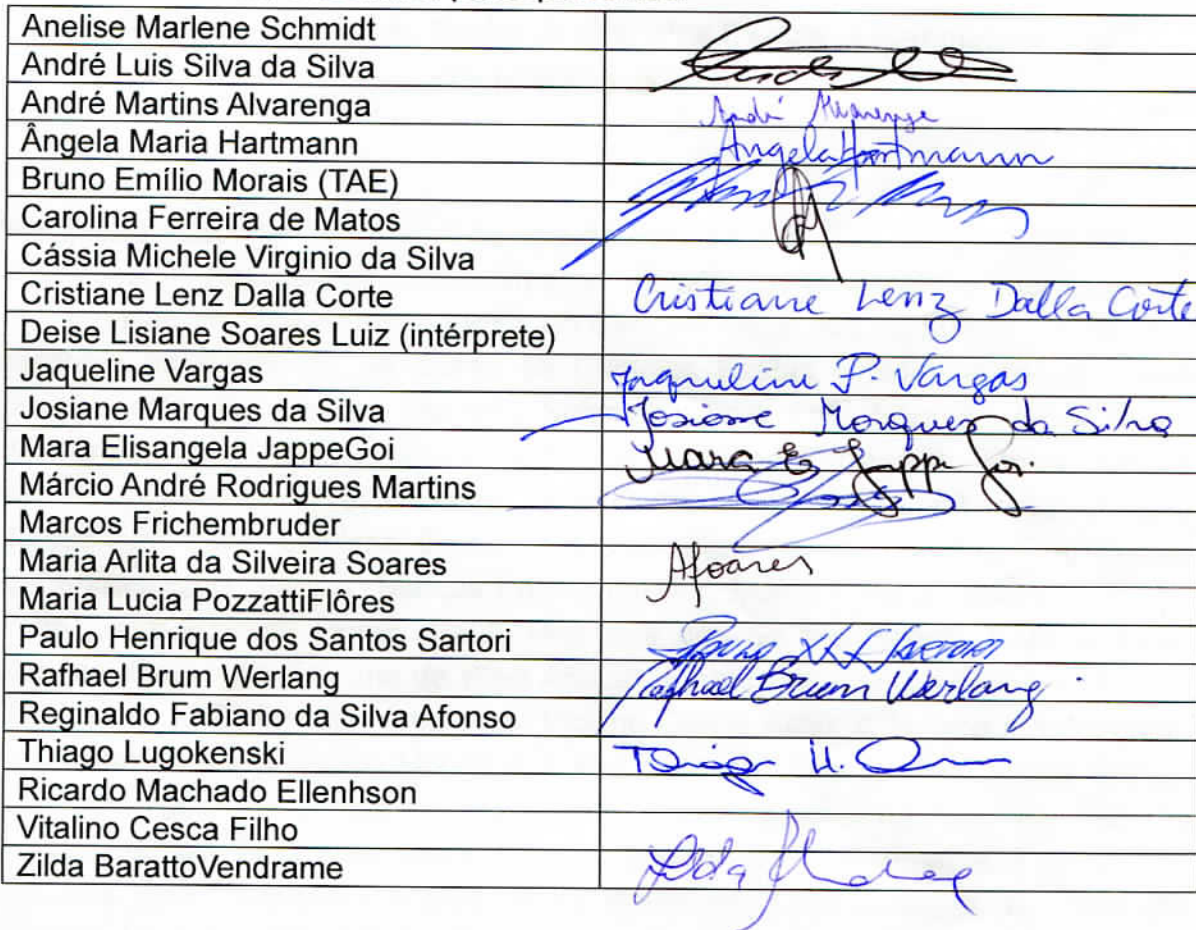 Anelise Marlene Schmidt
André Luis Silva da Silva
André Martins Alvarenga André Alvarenga
Ângela Maria Hartmann Angela Hartmann
Bruno Emílio Morais (TAE)
Carolina Ferreira de Matos
Cássia Michele Virginio da Silva
Cristiane Lenz Dalla Corte Cristiane Lenz Dalla Corte
Deise Lisiane Soares Luiz (intérprete)
Jaqueline Vargas Jaqueline P. Vargas
Josiane Marques da Silva Josiane Marques da Silva
Mara Elisangela JappeGoi Mara E. Jappe Goi.
Márcio André Rodrigues Martins
Marcos Frichembruder
Maria Arlita da Silveira Soares ASoares
Maria Lucia PozzattiFlôres
Paulo Henrique dos Santos Sartori
Rafhael Brum Werlang Rafhael Brum Werlang
Reginaldo Fabiano da Silva Afonso
Thiago Lugokenski Thiago
Ricardo Machado Ellenhson
Vitalino Cesca Filho
Zilda BarattoVendrame Zilda